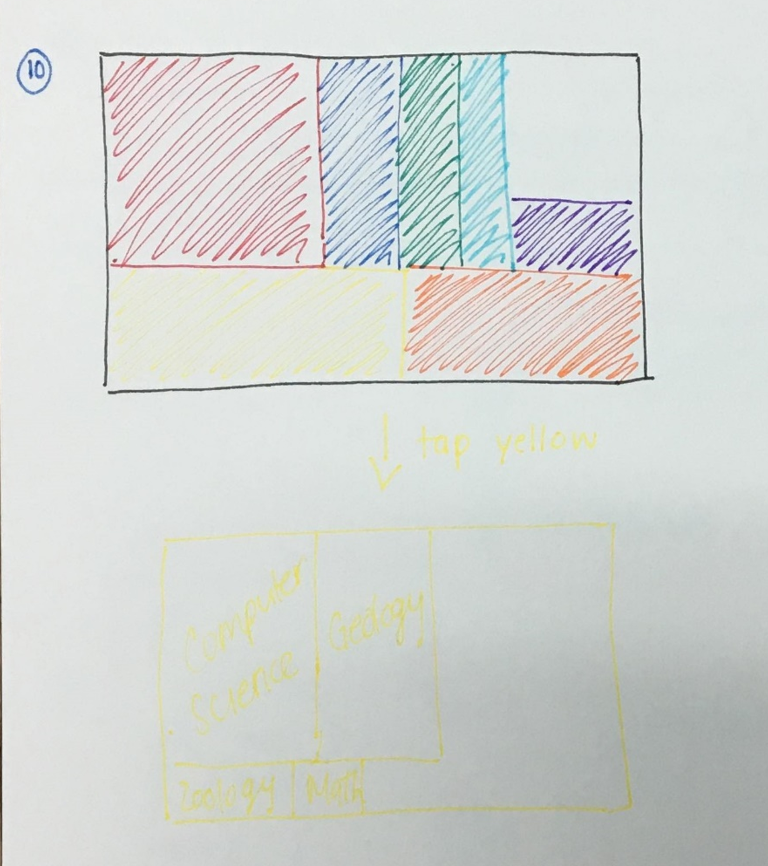 10
tap yellow
Computer
Science
Geology
Zoology
Math